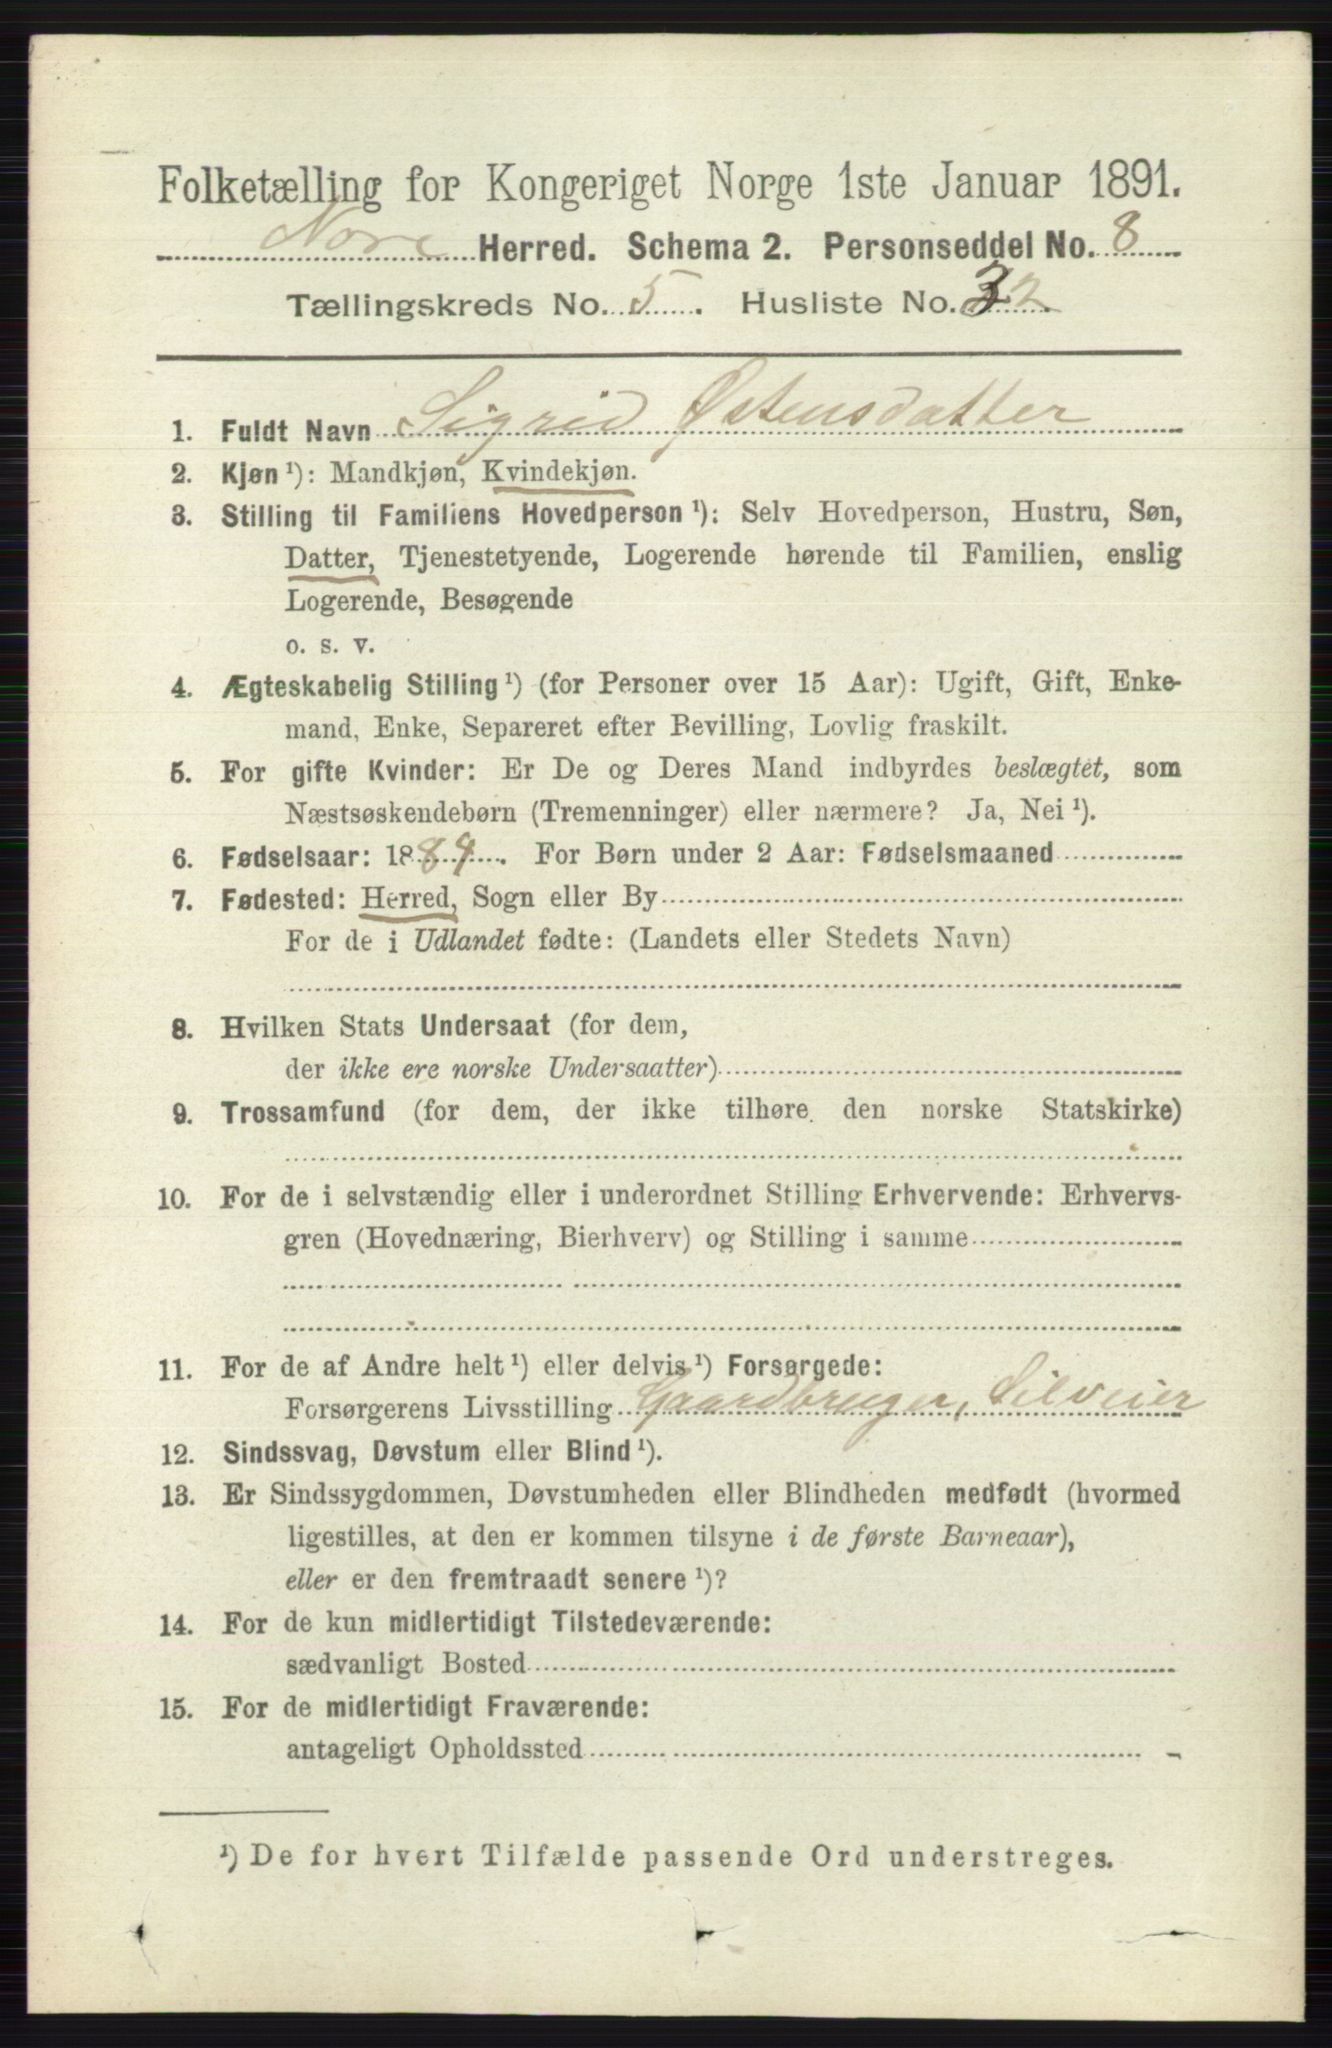 Folketælling for Kongeriget Norge 1ste Januar 1891.
Nore Herred. Schema 2. Personseddel No. 8
Tællingskreds No. 5. Husliste No. 32
1. Fuldt Navn Sigrid Østensdatter
2. Kjøn ¹): Mandkjøn, Kvindekjøn.
3. Stilling til Familiens Hovedperson ¹): Selv Hovedperson, Hustru, Søn,
Datter, Tjenestetyende, Logerende hørende til Familien, enslig
Logerende, Besøgende
o. s. v.
4. Ægteskabelig Stilling ¹) (for Personer over 15 Aar): Ugift, Gift, Enke-
mand, Enke, Separeret efter Bevilling, Lovlig fraskilt.
5. For gifte Kvinder: Er De og Deres Mand indbyrdes beslægtet, som
Næstsøskendebørn (Tremenninger) eller nærmere? Ja, Nei ¹).
6. Fødselsaar: 1884. For Børn under 2 Aar: Fødselsmaaned
7. Fødested: Herred, Sogn eller By
For de i Udlandet fødte: (Landets eller Stedets Navn)
8. Hvilken Stats Undersaat (for dem,
der ikke ere norske Undersaatter)
9. Trossamfund (for dem, der ikke tilhøre den norske Statskirke)
10. For de i selvstændig eller i underordnet Stilling Erhvervende: Erhvervs-
gren (Hovednæring, Bierhverv) og Stilling i samme
11. For de af Andre helt ¹) eller delvis ¹) Forsørgede:
Forsørgerens Livsstilling Gaardbruger, Selveier
12. Sindssvag, Døvstum eller Blind ¹).
13. Er Sindssygdommen, Døvstumheden eller Blindheden medfødt (hvormed
ligestilles, at den er kommen tilsyne i de første Barneaar),
eller er den fremtraadt senere ¹)?
14. For de kun midlertidigt Tilstedeværende:
sædvanligt Bosted
15. For de midlertidigt Fraværende:
antageligt Opholdssted
¹) De for hvert Tilfælde passende Ord understreges.